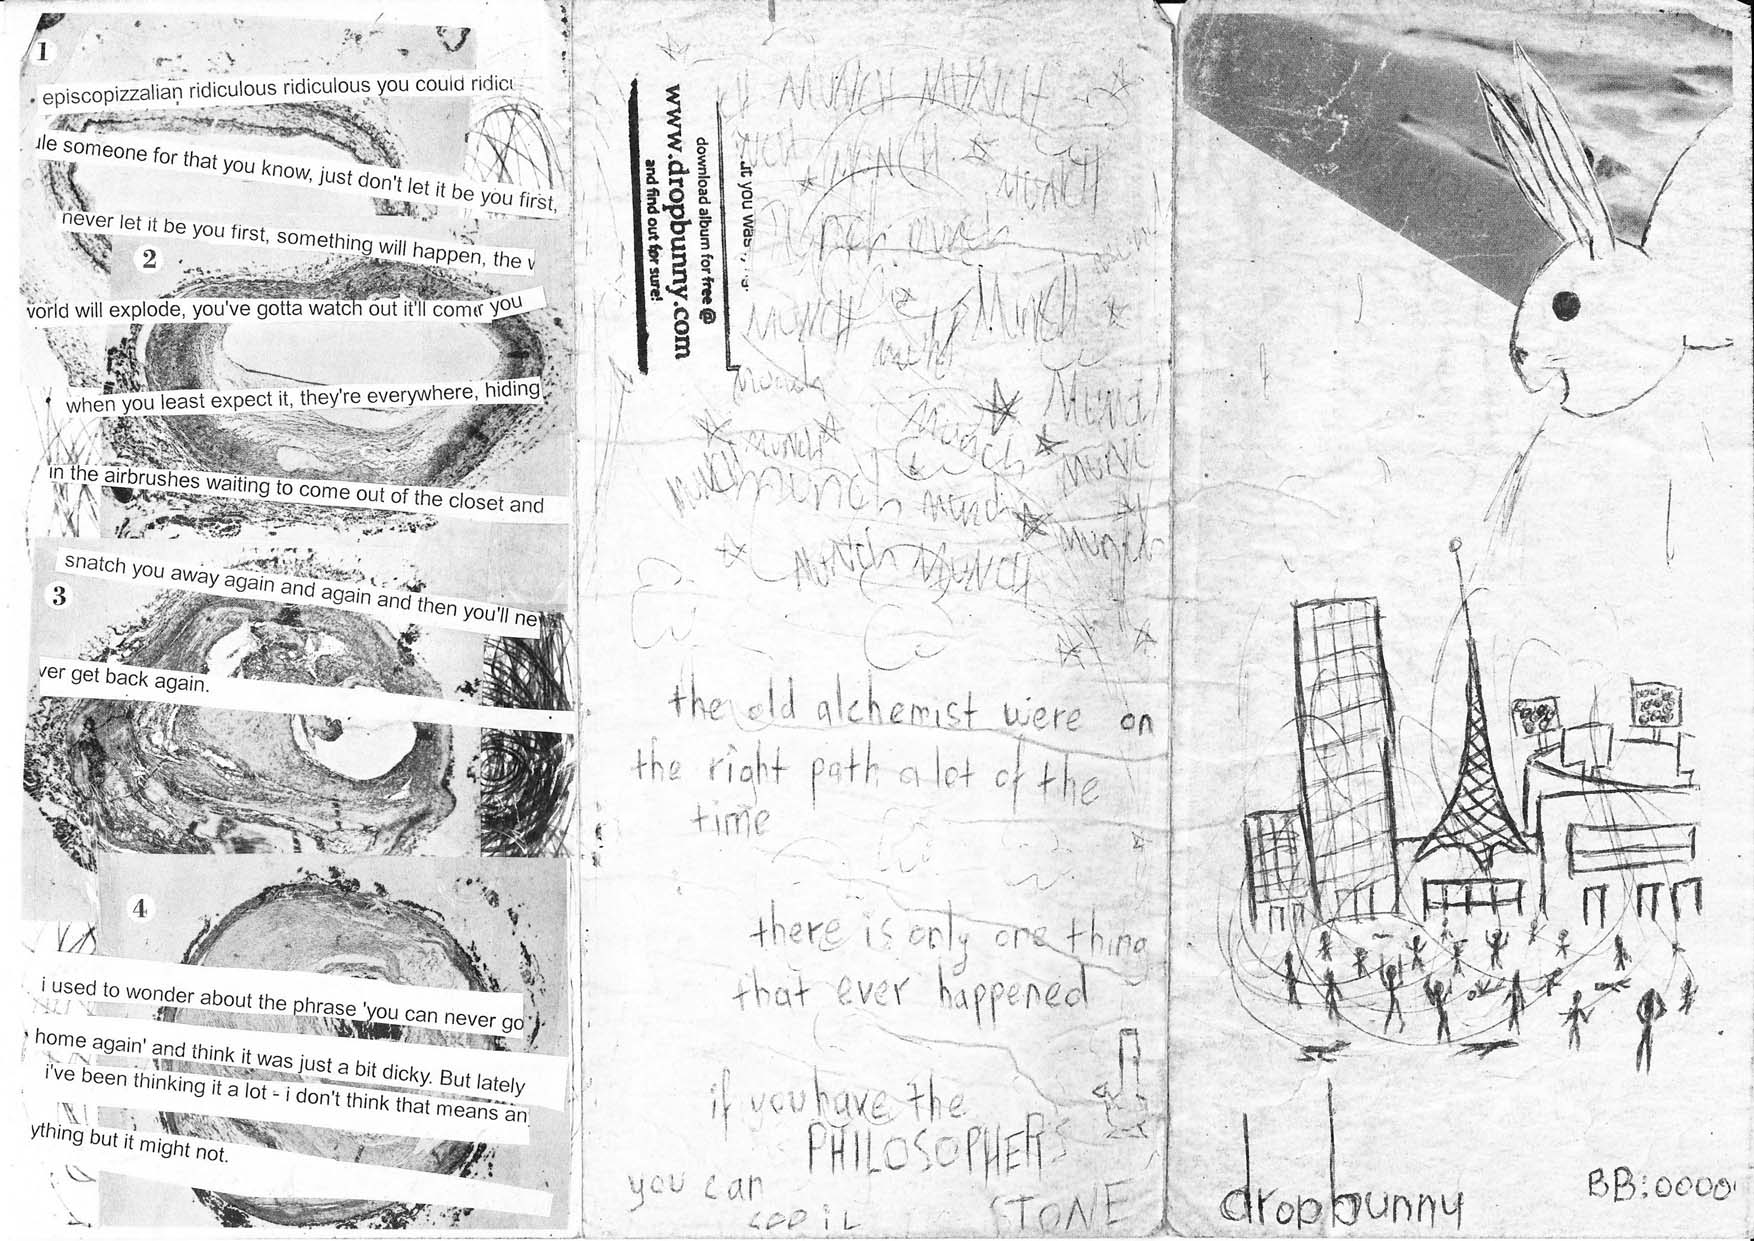 1
episcopizzalian ridiculous ridiculous you could ridicu
ule someone for that you know, just don't let it be you first,
never let it be you first, something will happen, the w
2
vorld will explode, you've gotta watch out it'll come you
when you least expect it, they're everywhere, hiding
in the airbrushes waiting to come out of the closet and
snatch you away again and again and then you'll ne
3
ver get back again.
4
i used to wonder about the phrase 'you can never go
home again' and think it was just a bit dicky. But lately
i've been thinking it a lot - i don't think that means an
ything but it might not.
download album for free @
www.dropbunny.com
and find out for sure!
MUNCH MUNCH
MUNCH
MUNCH
munch munch
MUNCH
MUNCH
munch
Munch
MUNCH
munch
MUNCH
munch
munch
MUNCH
MUNCH MUNCH
the old alchemist were on
the right path a lot of the
time
there is only one thing
that ever happened
if you have the
PHILOSOPHERS
STONE
you can
dropbunny
BB:0000